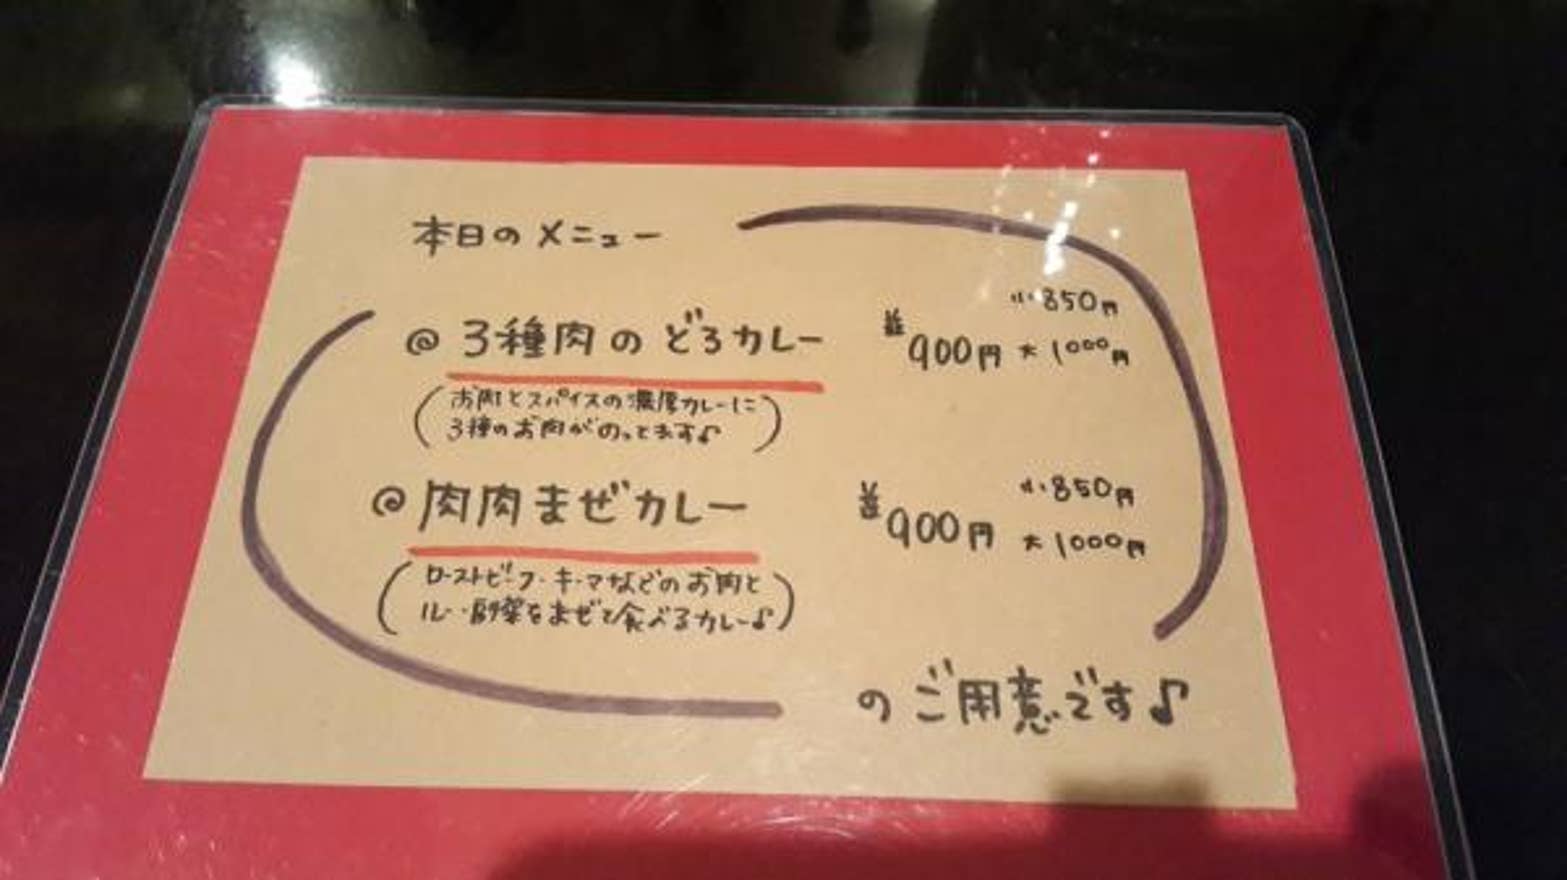 本日のメニュー
@ 3種肉のどろカレー 並900円 小850円 大1000円
(お肉とスパイスの濃厚カレーに
3種のお肉がのってます♪)
@ 肉肉まぜカレー 並900円 小850円 大1000円
(ローストビーフ・キーマなどのお肉と
ルー・副菜をまぜて食べるカレー♪)
のご用意です♪